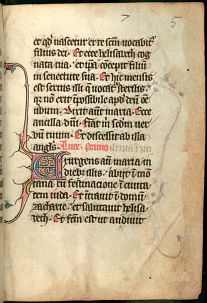 7 5
er qd nascetur ex te scm vocabit
filius dei. Et ecce helisabeth cog
nata tua. et ipa concepit filium
in senectute sua. Et hic mensis
est sextus illi q vocatr sterilis.
q non erit ipossibile apd dm oē
verbum. Dixit aut maria. Ecce
ancilla dni. fiat in scdm ver
bū tuum. Et discessit ab illa
angl. Luce. Primo
Exurgens aut maria in
dieb illis. abiit i mō
tana cū festinacione i civita
tem iuda. Et int̄vit i domū
zacharie. et salutavit helisa
beth. Et fcm est ut audivit